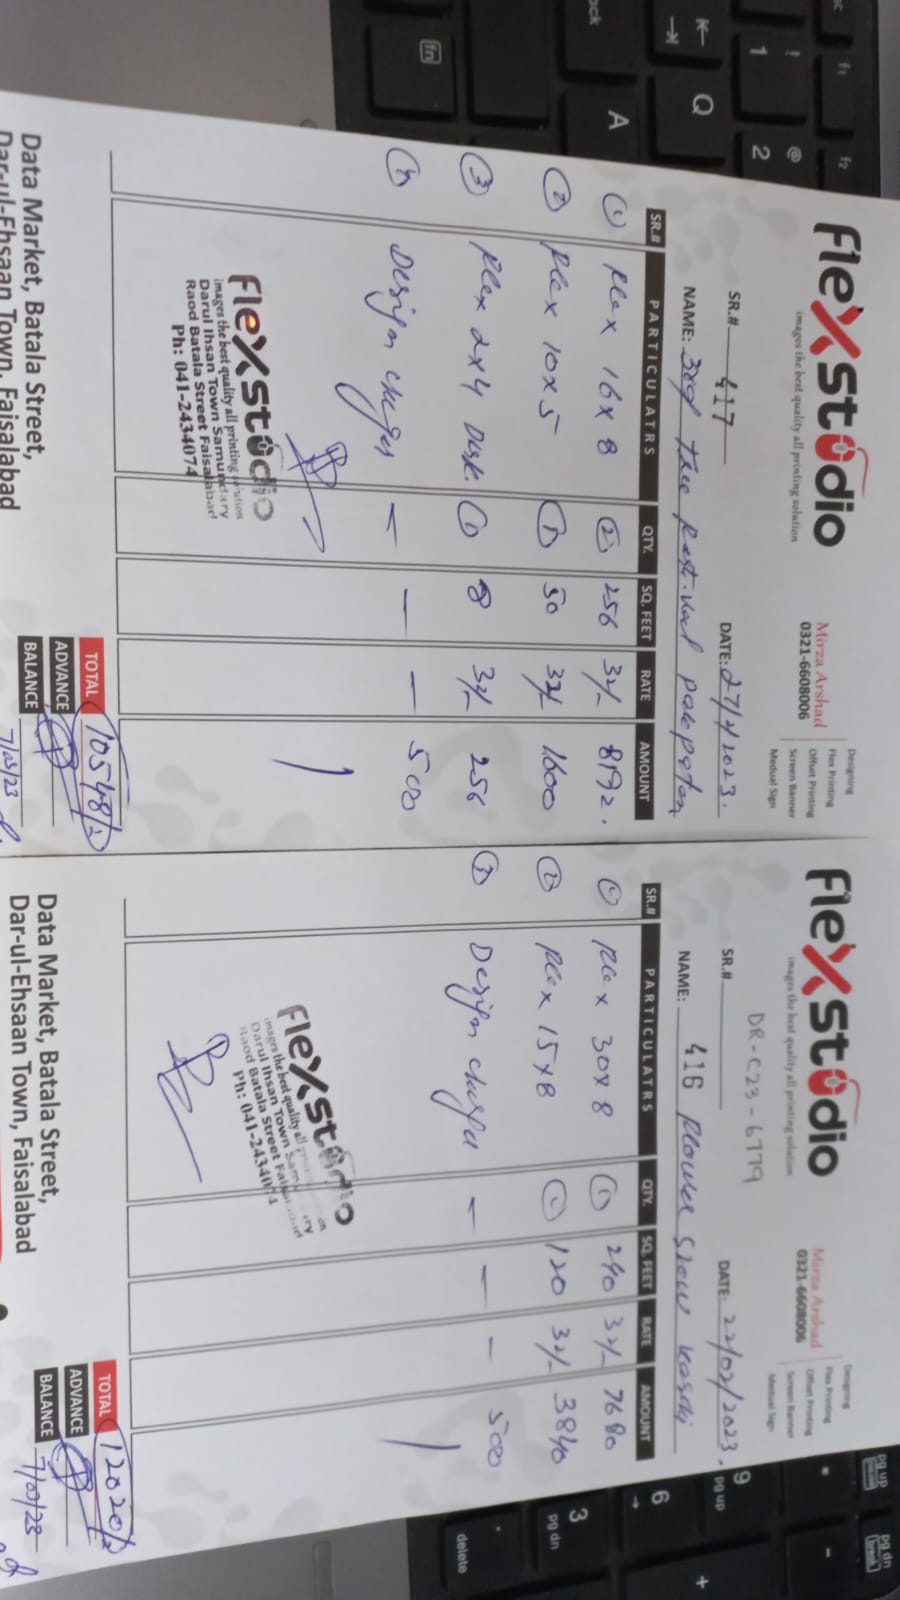 flexstudio
images the best quality all printing solution
Mirza Arshad
0321-6608006
Designing
Flex Printing
Offset Printing
Screen Banner
Medual Sign
SR.# 417
DATE: 27/2/2023.
NAME:
SR.# PARTICULATRS QTY. SQ. FEET RATE AMOUNT
1 Flex 16 x 8 2 256 32/- 8192.
2 Flex 10 x 5 1 50 32/ 1600
3 Flex 2x4 1 8 32/- 256
4 Design — — 500
flexstudio
images the best quality all printing solution
Darul Ihsan Town Samundary
Raod Batala Street Faisalabad
Ph: 041-2434074
TOTAL 10548/
ADVANCE
BALANCE 7/03/23
Data Market, Batala Street,
Dar-ul-Ehsaan Town, Faisalabad
flexstudio
images the best quality all printing solution
Mirza Arshad
0321-6608006
Designing
Flex Printing
Offset Printing
Screen Banner
Medual Sign
DR-C23-6779
SR.#
DATE: 22/02/2023.
NAME: 416 Flower
SR.# PARTICULATRS QTY. SQ. FEET RATE AMOUNT
1 Flex 30 x 8 1 240 32/- 7680
2 Flex 15 x 8 1 120 32/- 3840
3 Design — — — 500
flexstudio
images the best quality all
Darul Ihsan Town
Raod Batala Street
Ph: 041-2434074
TOTAL 12020/
ADVANCE
BALANCE 7/03/23
Data Market, Batala Street,
Dar-ul-Ehsaan Town, Faisalabad
fn
A
Q
1
!
2
@
f1
f2
9
pg up
6
3
pg dn
.
delete
+
*
-
pg up
pg dn
break